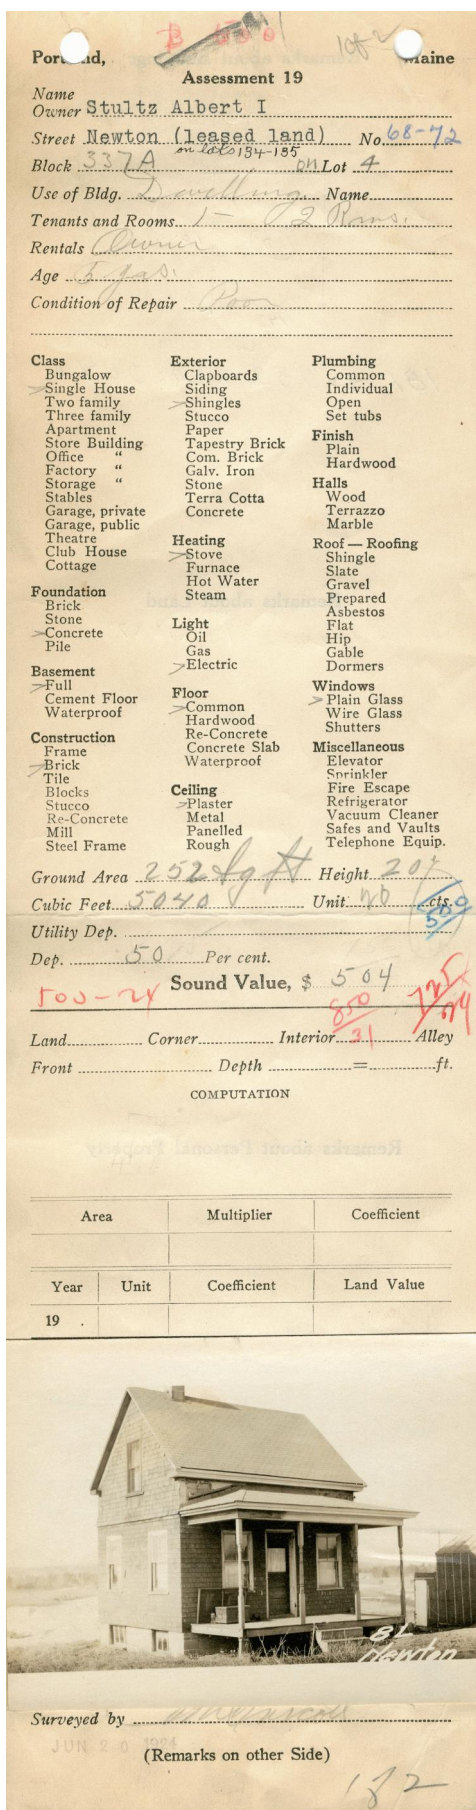 B 500
1 of 2
Portland, Maine
Assessment 19
Name
Owner Stultz Albert I
Street Newton (leased land) No. 68-72
on lots 134-135
Block 337A on Lot 4
Use of Bldg. Dwelling Name
Tenants and Rooms 1- 2 Rms.
Rentals Owner
Age 5 yrs.
Condition of Repair Poor
Class
Bungalow
Single House
Two family
Three family
Apartment
Store Building
Office "
Factory "
Storage "
Stables
Garage, private
Garage, public
Theatre
Club House
Cottage
Foundation
Brick
Stone
Concrete
Pile
Basement
Full
Cement Floor
Waterproof
Construction
Frame
Brick
Tile
Blocks
Stucco
Re-Concrete
Mill
Steel Frame
Exterior
Clapboards
Siding
Shingles
Stucco
Paper
Tapestry Brick
Com. Brick
Galv. Iron
Stone
Terra Cotta
Concrete
Heating
Stove
Furnace
Hot Water
Steam
Light
Oil
Gas
Electric
Floor
Common
Hardwood
Re-Concrete
Concrete Slab
Waterproof
Ceiling
Plaster
Metal
Panelled
Rough
Plumbing
Common
Individual
Open
Set tubs
Finish
Plain
Hardwood
Halls
Wood
Terrazzo
Marble
Roof — Roofing
Shingle
Slate
Gravel
Prepared
Asbestos
Flat
Hip
Gable
Dormers
Windows
Plain Glass
Wire Glass
Shutters
Miscellaneous
Elevator
Sprinkler
Fire Escape
Refrigerator
Vacuum Cleaner
Safes and Vaults
Telephone Equip.
Ground Area 252 sq ft Height 20
Cubic Feet 5040 Unit 20 cts.
Utility Dep.
Dep. 50 Per cent.
Sound Value, $ 504
500-24
850
31
725
Land Corner Interior Alley
Front Depth = ft.
COMPUTATION
Remarks about Personal Property
Area Multiplier Coefficient
Year Unit Coefficient Land Value
19 .
BL
Newton
Surveyed by
JUN 20 1924
(Remarks on other Side)
1 of 2